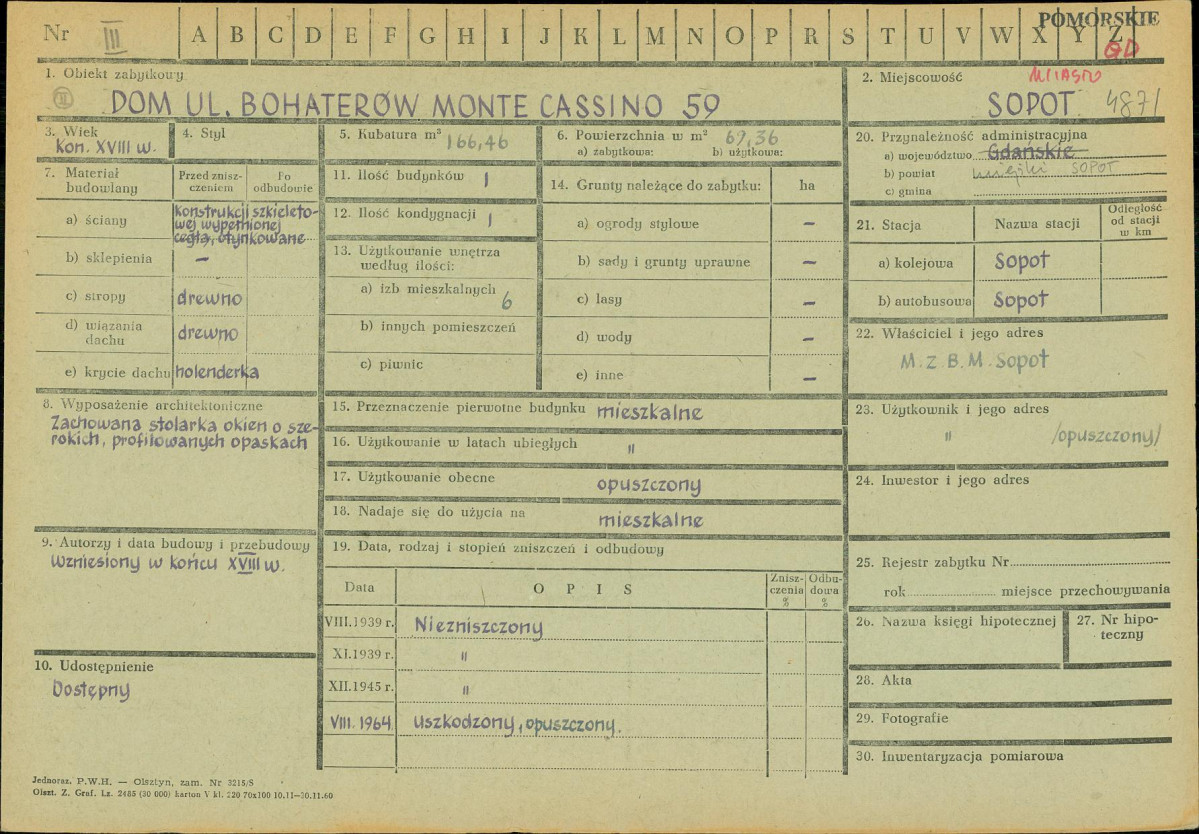 POMORSKIE
Nr III A B C D E F G H I J K L M N O P R S T U V W X Y Z
GD
1. Obiekt zabytkowy
II DOM UL. BOHATERÓW MONTE CASSINO 59
2. Miejscowość MIASTO
SOPOT 4871
3. Wiek
Kon. XVIII w.
4. Styl
5. Kubatura m³ 166,46
6. Powierzchnia w m² 69,36
a) zabytkowa: b) użytkowa:
7. Materiał budowlany
Przed zniszczeniem
Po odbudowie
a) ściany
konstrukcji szkieleto-
wej wypełnionej
cegłą, otynkowane
b) sklepienia –
c) stropy drewno
d) wiązania dachu drewno
e) krycie dachu holenderka
8. Wyposażenie architektoniczne
Zachowana stolarka okien o sze-
rokich, profilowanych opaskach
9. Autorzy i data budowy i przebudowy
Wzniesiony w końcu XVIII w.
10. Udostępnienie
Dostępny
11. Ilość budynków 1
12. Ilość kondygnacji 1
13. Użytkowanie wnętrza
według ilości:
a) izb mieszkalnych 6
b) innych pomieszczeń
c) piwnic
14. Grunty należące do zabytku: ha
a) ogrody stylowe –
b) sady i grunty uprawne –
c) lasy –
d) wody –
e) inne –
15. Przeznaczenie pierwotne budynku mieszkalne
16. Użytkowanie w latach ubiegłych "
17. Użytkowanie obecne opuszczony
18. Nadaje się do użycia na mieszkalne
19. Data, rodzaj i stopień zniszczeń i odbudowy
Data OPIS Zniszczenia % Odbudowa %
VIII.1939 r. Niezniszczony
XI.1939 r. "
XII.1945 r. "
VIII. 1964 uszkodzony, opuszczony.
20. Przynależność administracyjna
a) województwo Gdańskie
b) powiat miejski SOPOT
c) gmina
21. Stacja Nazwa stacji Odległość od stacji w km
a) kolejowa Sopot
b) autobusowa Sopot
22. Właściciel i jego adres
M.Z.B.M. Sopot
23. Użytkownik i jego adres
" /opuszczony/
24. Inwestor i jego adres
25. Rejestr zabytku Nr
rok miejsce przechowywania
26. Nazwa księgi hipotecznej
27. Nr hipo-
teczny
28. Akta
29. Fotografie
30. Inwentaryzacja pomiarowa
Jednoraz. P.W.H. — Olsztyn, zam. Nr 3215/S
Olszt. Z. Graf. Lz. 2485 (30 000) karton V kl. 220 70x100 10.11—30.11.60